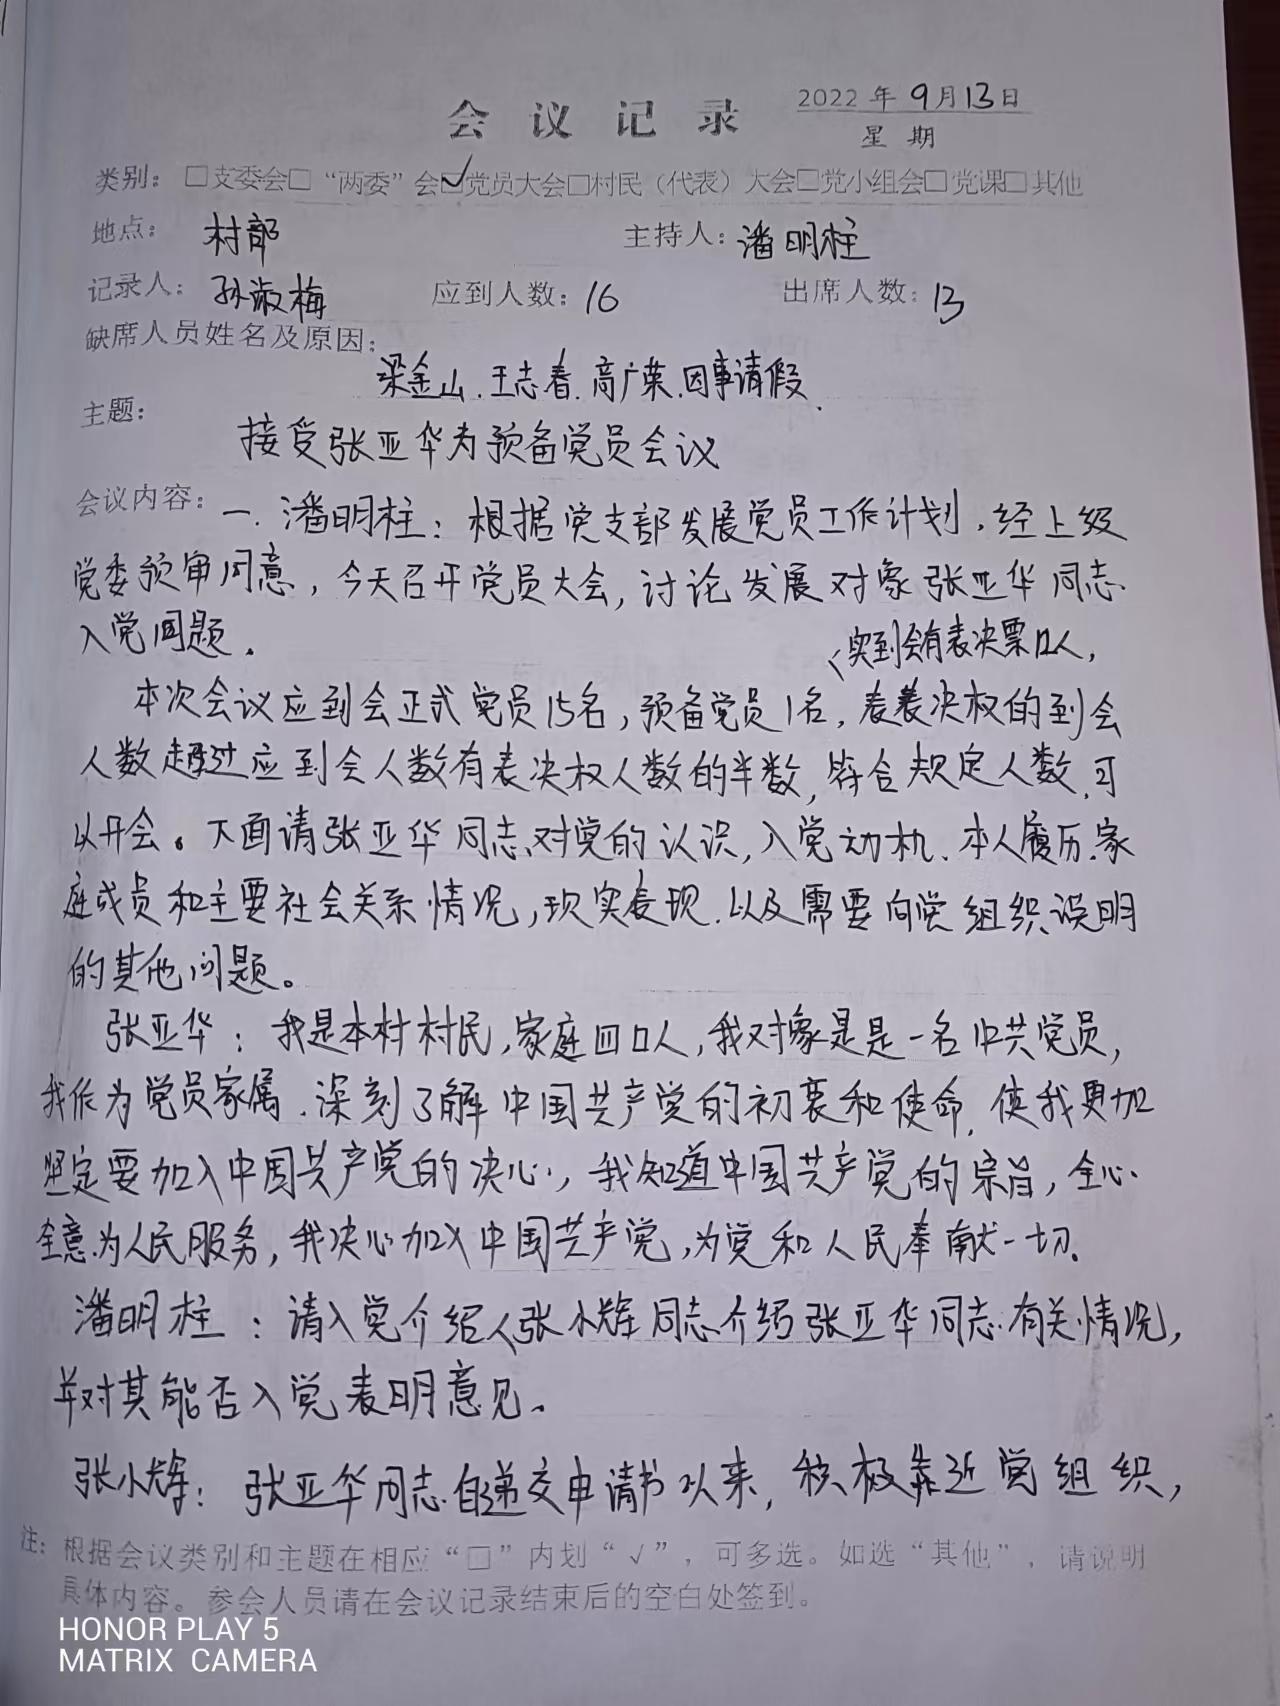 会议记录
2022年9月13日
星期
类别：□支委会□“两委”会☑党员大会□村民（代表）大会□党小组会□党课□其他
地点： 村部 主持人：潘明柱
记录人：孙淑梅 应到人数：16 出席人数：13
缺席人员姓名及原因：
梁金山、王志春、高广荣、因事请假、
主题：
接受张亚华为预备党员会议
会议内容：一、潘明柱：根据党支部发展党员工作计划，经上级
党委预审同意，今天召开党员大会，讨论发展对象张亚华同志
入党问题。
实到会有表决票12人，
本次会议应到会正式党员15名，预备党员1名，表表决权的到会
人数超过应到会人数有表决权人数的半数，符合规定人数，可
以开会。下面请张亚华同志对党的认识，入党动机、本人履历、家
庭成员和主要社会关系情况，现实表现、以及需要向党组织说明
的其他问题。
张亚华：我是本村村民，家庭四口人，我对象是是一名中共党员，
我作为党员家属、深刻了解中国共产党的初衷和使命，使我更加
坚定要加入中国共产党的决心，我知道中国共产党的宗旨，全心
全意为人民服务，我决心加入中国共产党，为党和人民奉献一切。
潘明柱：请入党介绍人张小辉同志介绍张亚华同志有关情况，
并对其能否入党表明意见。
张小辉：张亚华同志自递交申请书以来，积极靠近党组织，
注：根据会议类别和主题在相应“□”内划“√”，可多选。如选“其他”，请说明
具体内容。参会人员请在会议记录结束后的空白处签到。
HONOR PLAY 5
MATRIX CAMERA